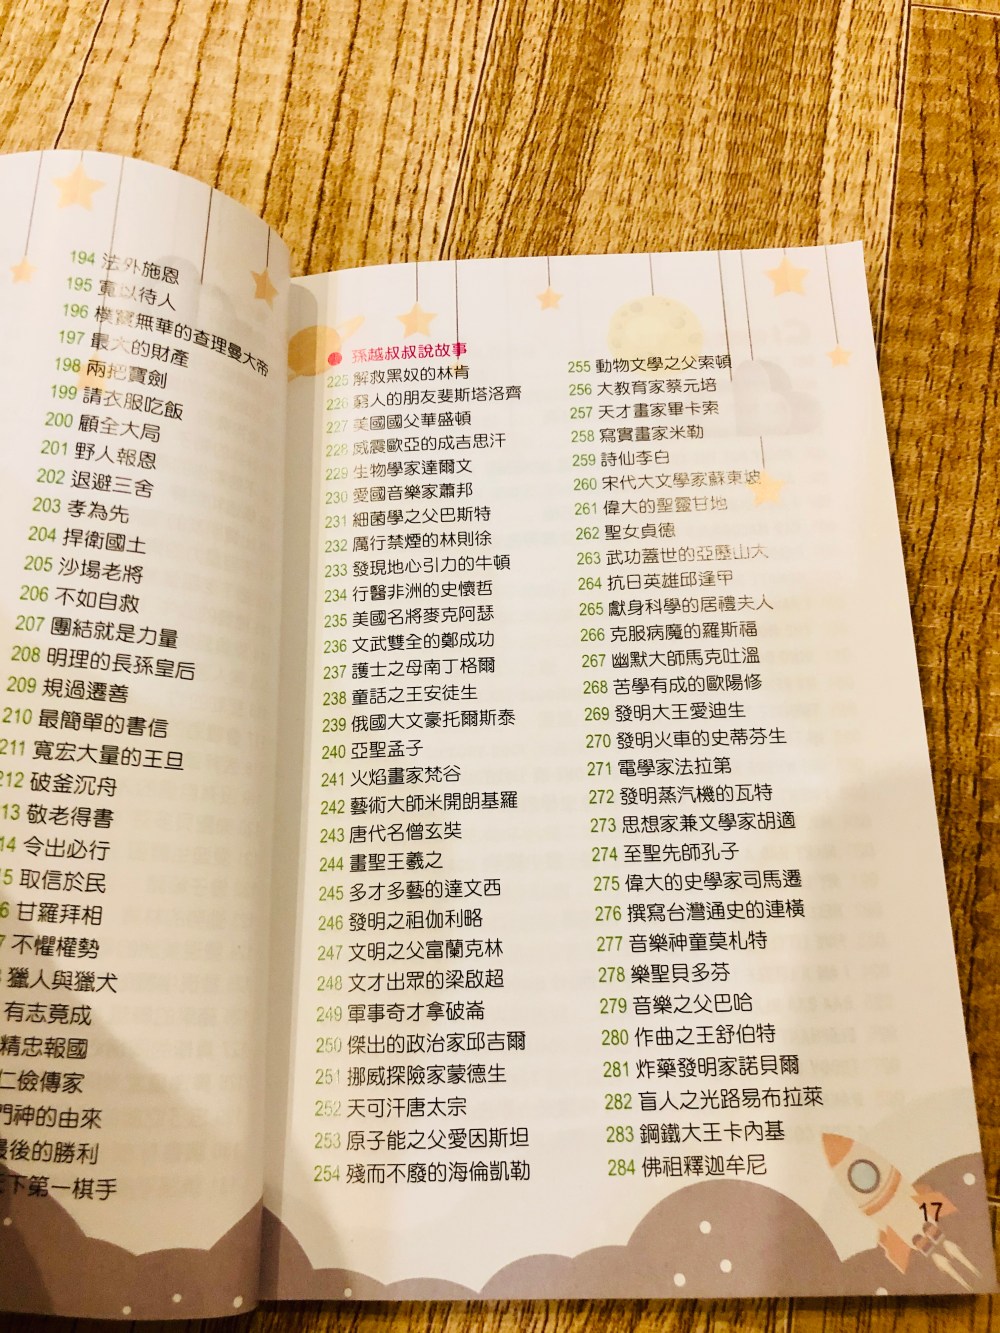 194 法外施恩
195 寬以待人
196 樸實無華的查理曼大帝
197 最大的財產
198 兩把寶劍
199 請衣服吃飯
200 顧全大局
201 野人報恩
202 退避三舍
203 孝為先
204 捍衛國土
205 沙場老將
206 不如自救
207 團結就是力量
208 明理的長孫皇后
209 規過遷善
210 最簡單的書信
211 寬宏大量的王旦
212 破釜沉舟
13 敬老得書
14 令出必行
5 取信於民
6 甘羅拜相
7 不懼權勢
獵人與獵犬
有志竟成
精忠報國
仁儉傳家
門神的由來
最後的勝利
天下第一棋手
孫越叔叔說故事
225 解救黑奴的林肯
226 窮人的朋友裴斯塔洛齊
227 美國國父華盛頓
228 威震歐亞的成吉思汗
229 生物學家達爾文
230 愛國音樂家蕭邦
231 細菌學之父巴斯特
232 厲行禁煙的林則徐
233 發現地心引力的牛頓
234 行醫非洲的史懷哲
235 美國名將麥克阿瑟
236 文武雙全的鄭成功
237 護士之母南丁格爾
238 童話之王安徒生
239 俄國大文豪托爾斯泰
240 亞聖孟子
241 火焰畫家梵谷
242 藝術大師米開朗基羅
243 唐代名僧玄奘
244 書聖王羲之
245 多才多藝的達文西
246 發明之祖伽利略
247 文明之父富蘭克林
248 文才出眾的梁啟超
249 軍事奇才拿破崙
250 傑出的政治家邱吉爾
251 挪威探險家蒙德生
252 天可汗唐太宗
253 原子能之父愛因斯坦
254 殘而不廢的海倫凱勒
255 動物文學之父索頓
256 大教育家蔡元培
257 天才畫家畢卡索
258 寫實畫家米勒
259 詩仙李白
260 宋代大文學家蘇東坡
261 偉大的聖靈甘地
262 聖女貞德
263 武功蓋世的亞歷山大
264 抗日英雄邱逢甲
265 獻身科學的居禮夫人
266 克服病魔的羅斯福
267 幽默大師馬克吐溫
268 苦學有成的歐陽修
269 發明大王愛迪生
270 發明火車的史蒂芬生
271 電學家法拉第
272 發明蒸汽機的瓦特
273 思想家兼文學家胡適
274 至聖先師孔子
275 偉大的史學家司馬遷
276 撰寫台灣通史的連橫
277 音樂神童莫札特
278 樂聖貝多芬
279 音樂之父巴哈
280 作曲之王舒伯特
281 炸藥發明家諾貝爾
282 盲人之光路易布拉萊
283 鋼鐵大王卡內基
284 佛祖釋迦牟尼
17